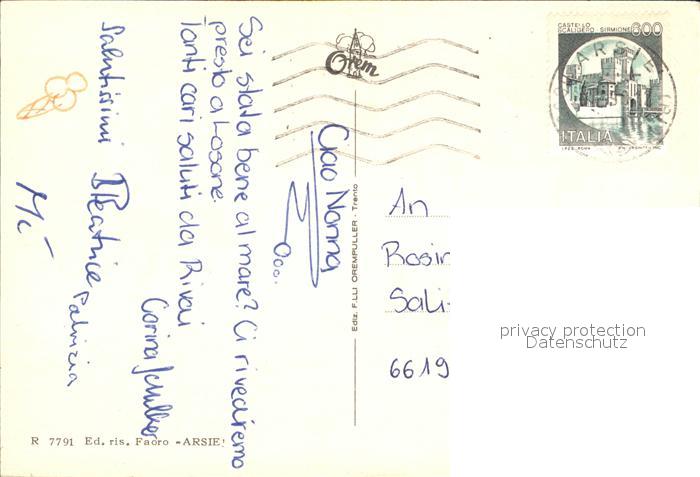 Ciao Nonna
Sei stata bene al mare? Ci rivedremo
presto a Losone.
Tanti cari saluti da Rivai
Corina
Salutissimi Beatrice
Patrizia
Orem
Ediz. F.LLI OREMPULLER - Trento
CASTELLO
SCALIGERO SIRMIONE 600
ITALIA
ARSIE
An
Rosin
Sali
6619
privacy protection
Datenschutz
R 7791 Ed. ris. Faoro - ARSIE'